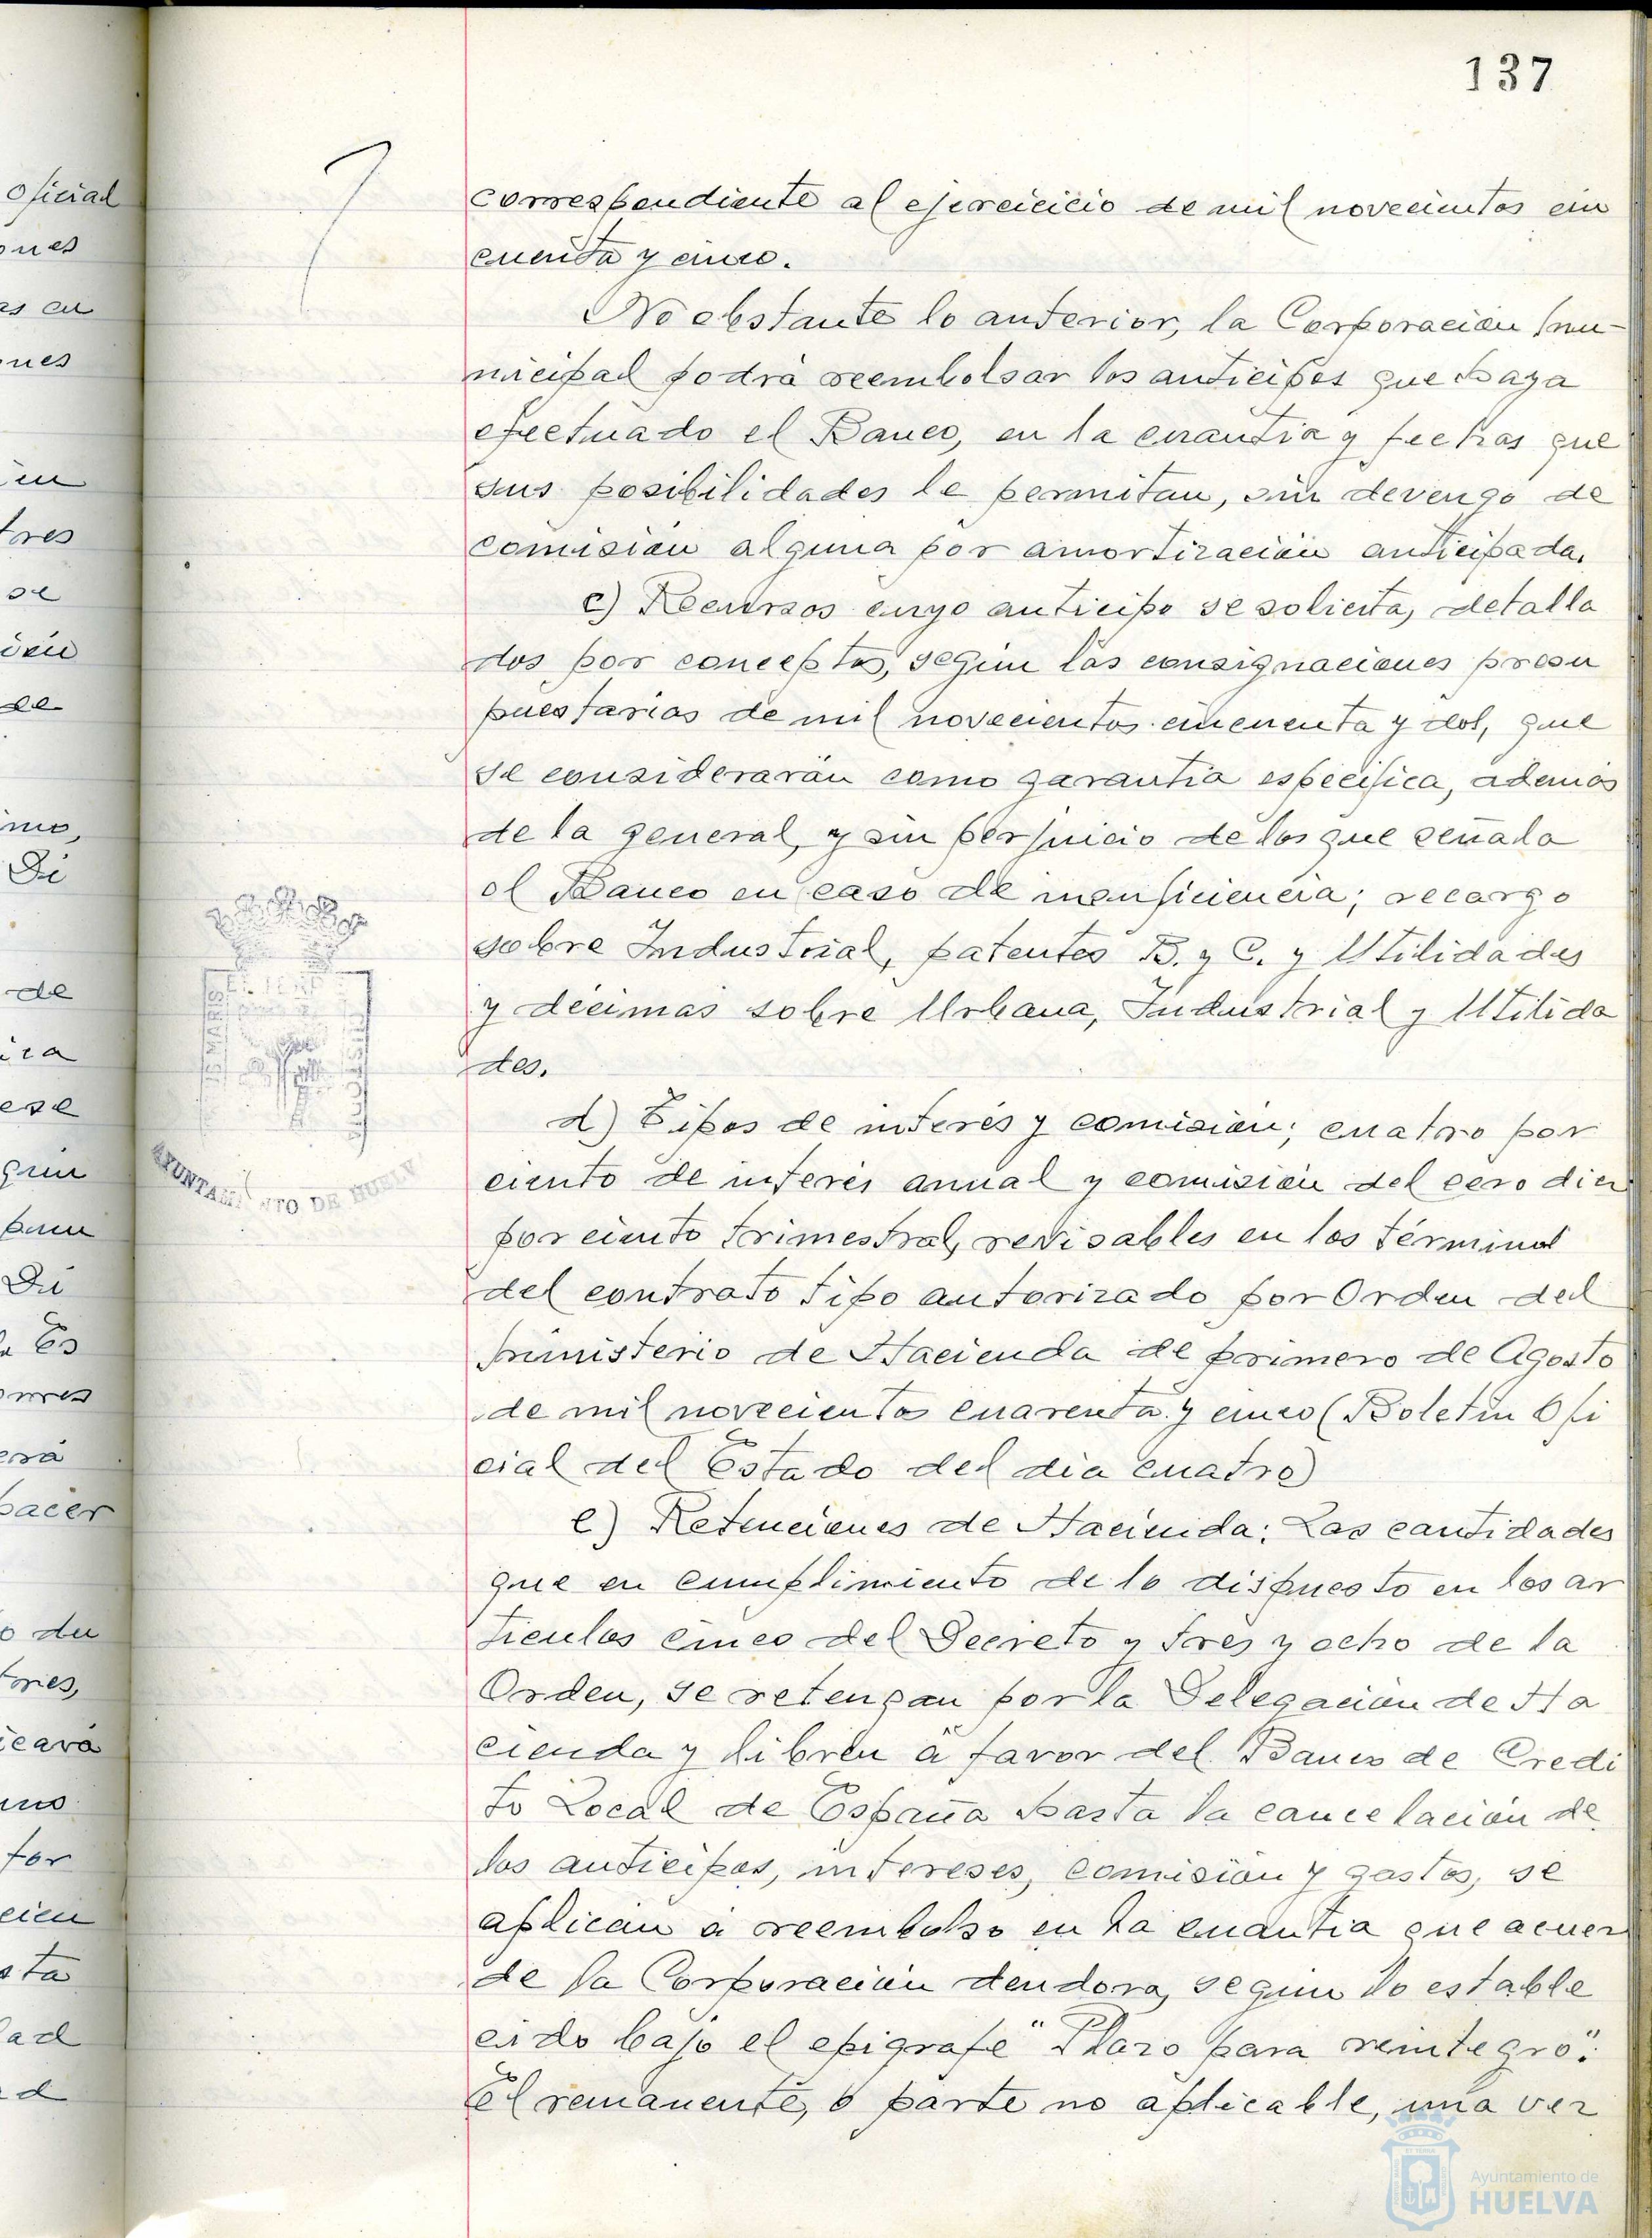 137
correspondiente al ejercicicio de mil novecientos cin
cuenta y cinco.
No obstante lo anterior, la Corporación mu-
nicipal podrá reembolsar los anticipos que haya
efectuado el Banco, en la cuantia y fechas que
sus posibilidades le permitan, sin devengo de
comisión alguna por amortización anticipada.
c) Recursos cuyo anticipo se solicita, detalla
dos por conceptos, según las consignaciones presu
puestarias de mil novecientos cincuenta y dos, que
se considerarán como garantia especifica, además
de la general, y sin perjuicio de los que señala
el Banco en caso de insuficiencia; recargo
sobre Industrial, patentes B. y C. y Utilidades
y décimas sobre Urbana, Industrial y Utilida
des.
d) Tipos de interés y comisión; cuatro por
ciento de interés annal y comisión del cero diez
por ciento trimestral, revisables en los términos
del contrato tipo autorizado por Orden del
ministerio de Hacienda de primero de Agosto
de mil novecientos cuarenta y cinco (Boletin Ofi
cial del Estado del dia cuatro)
e) Retenciones de Hacienda: Las cantidades
que en cumplimiento de lo dispuesto en los ar
ticulos cinco del Decreto y tres y ocho de la
Orden, se retengan por la Delegación de Ha
cienda y libren á favor del Banco de Credi
to Local de España hasta la cancelación de
los anticipos, intereses, comisión y gastos, se
aplican á reembolso en la cuantia que acuer
de la Corporación deudora, según lo estable
cido bajo el epigrafe "Plazo para reintegro".
El remanente, o parte no aplicable, una vez
AYUNTAMIENTO DE HUELVA
oficial
ones
as en
nes
tres
se
de
Di
de
ese
Es
erá
hacer
icará
for
sta
Ayuntamiento de
HUELVA